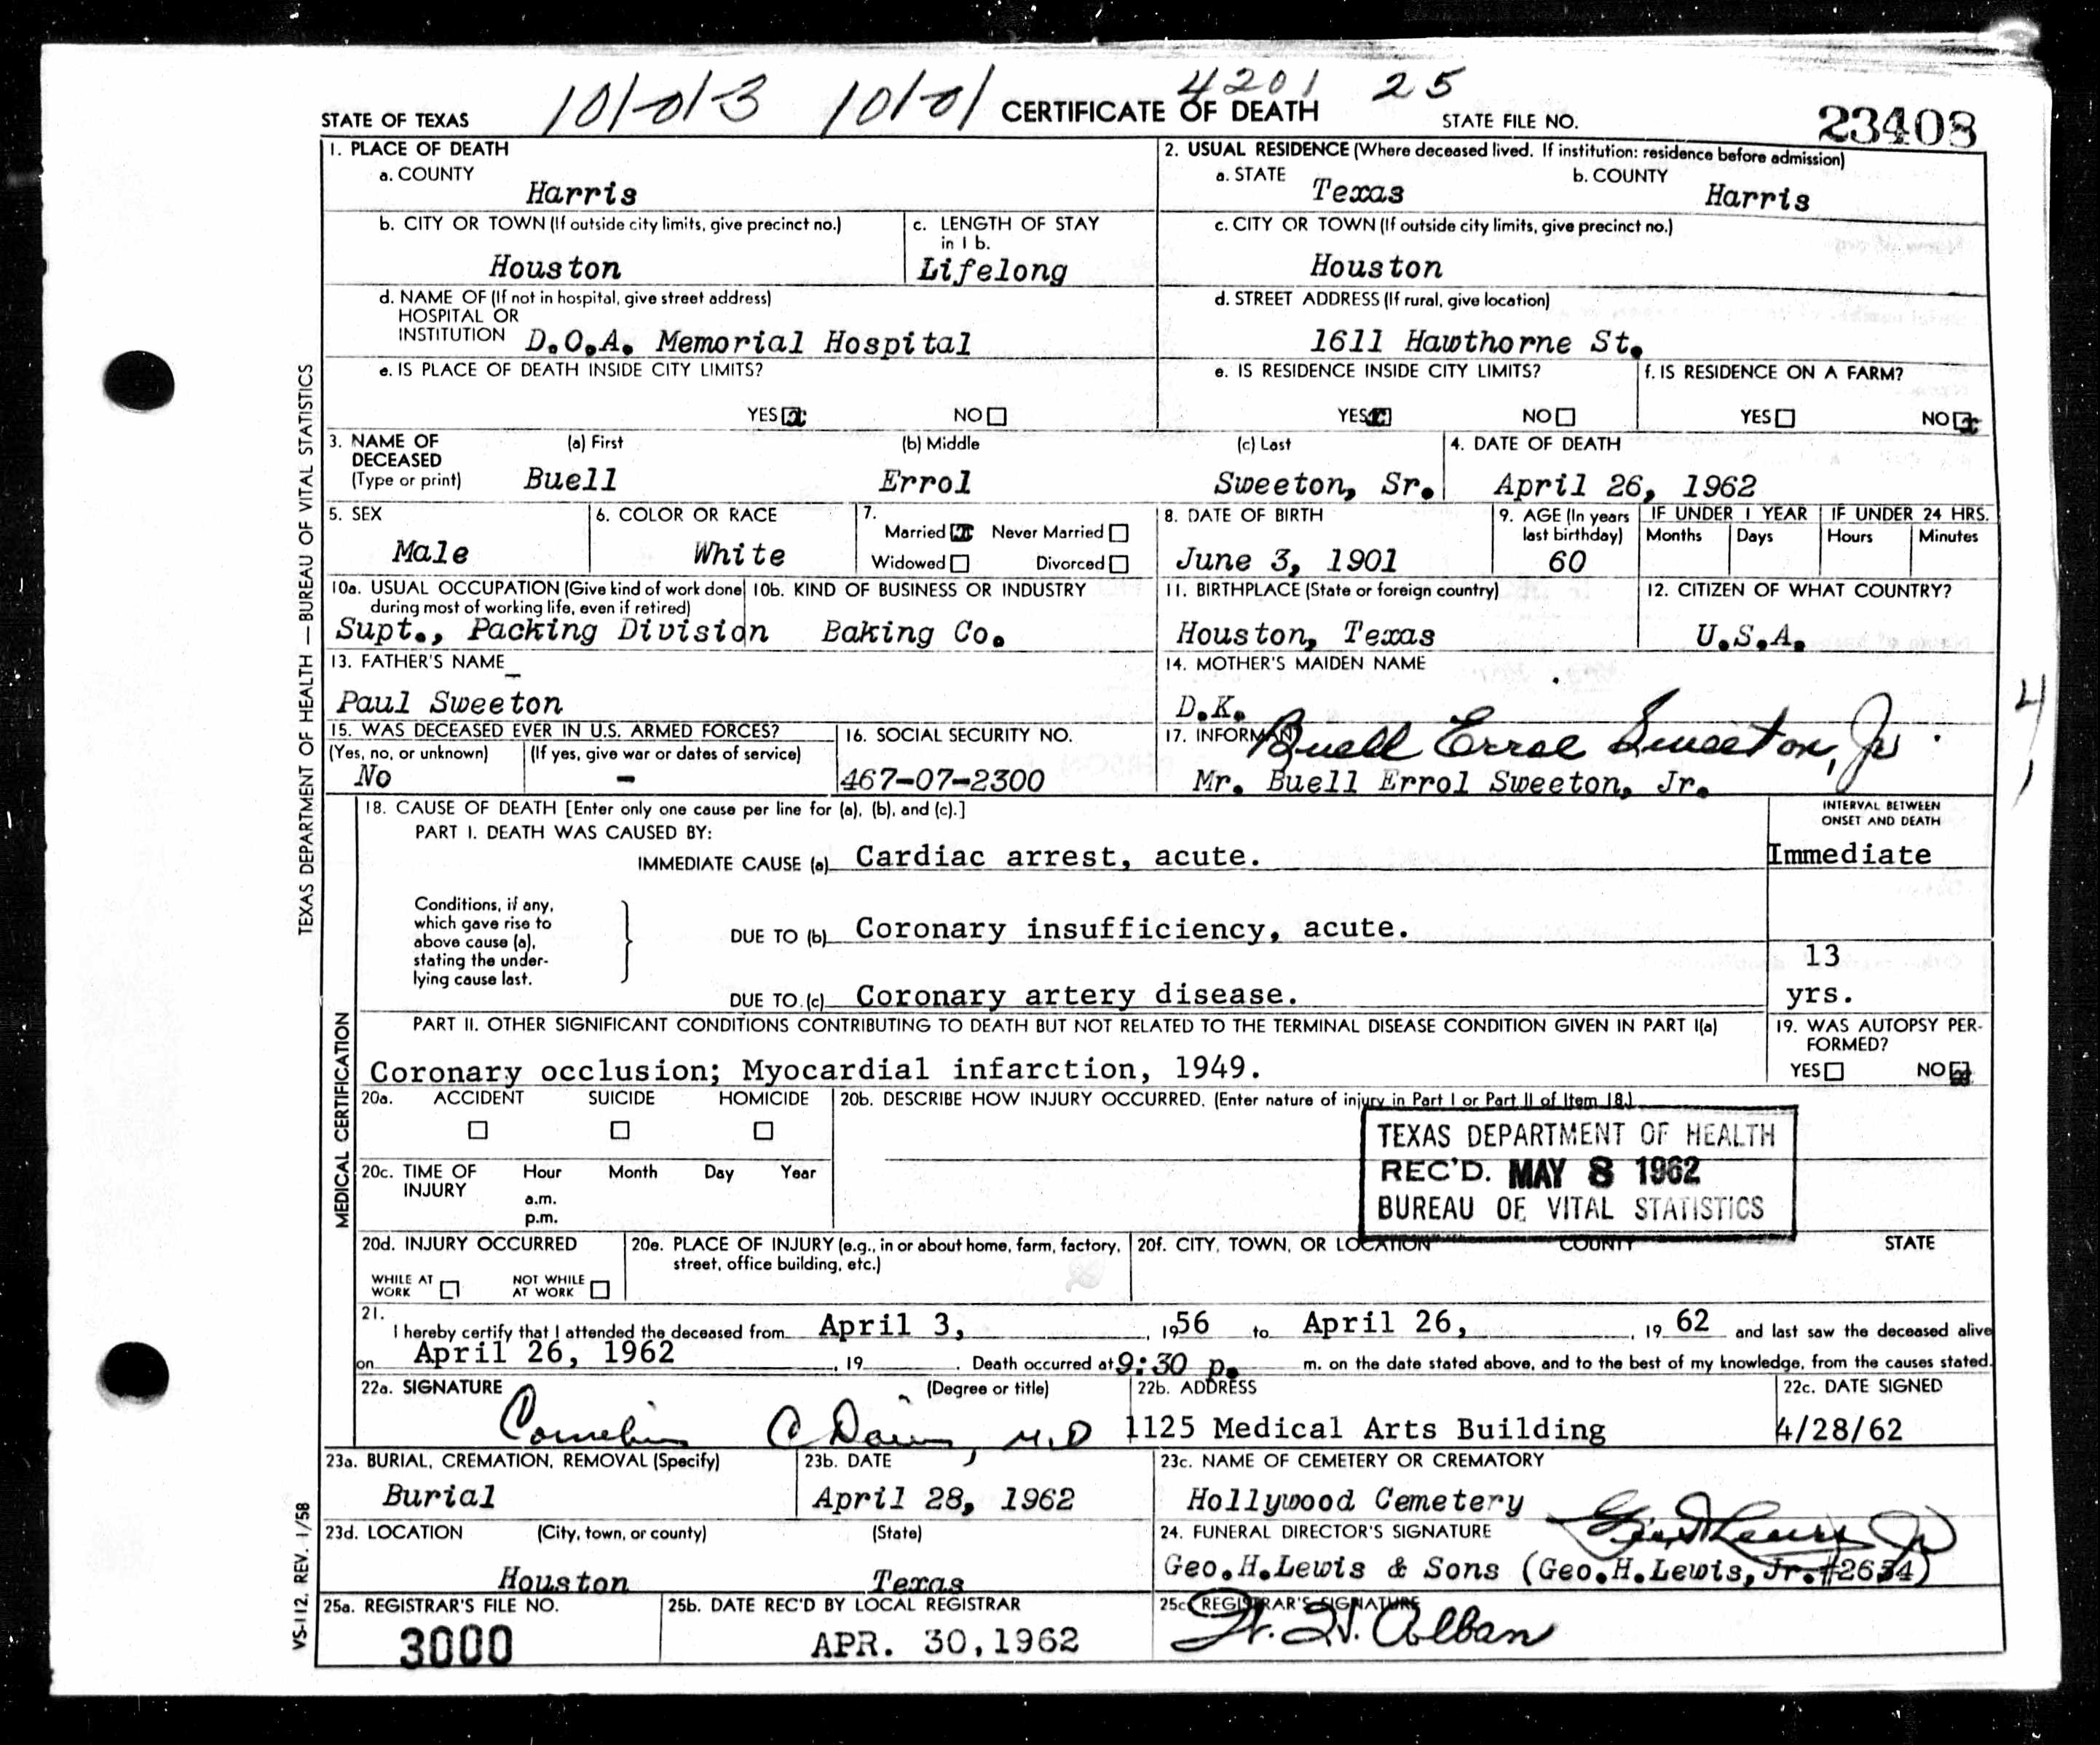 10/0/3 10/0/ 4201 25
STATE OF TEXAS CERTIFICATE OF DEATH STATE FILE NO. 23408
1. PLACE OF DEATH
a. COUNTY Harris
2. USUAL RESIDENCE (Where deceased lived. If institution: residence before admission)
a. STATE Texas b. COUNTY Harris
b. CITY OR TOWN (If outside city limits, give precinct no.) Houston
c. LENGTH OF STAY in 1 b. Lifelong
c. CITY OR TOWN (If outside city limits, give precinct no.) Houston
d. NAME OF (If not in hospital, give street address)
HOSPITAL OR
INSTITUTION D.O.A. Memorial Hospital
d. STREET ADDRESS (If rural, give location)
1611 Hawthorne St.
e. IS PLACE OF DEATH INSIDE CITY LIMITS?
YES x NO
e. IS RESIDENCE INSIDE CITY LIMITS?
YES x NO
f. IS RESIDENCE ON A FARM?
YES NO x
3. NAME OF DECEASED (Type or print)
(a) First Buell
(b) Middle Errol
(c) Last Sweeton, Sr.
4. DATE OF DEATH
April 26, 1962
5. SEX
Male
6. COLOR OR RACE
White
7.
Married x Never Married
Widowed Divorced
8. DATE OF BIRTH
June 3, 1901
9. AGE (In years last birthday)
60
IF UNDER 1 YEAR
Months Days
IF UNDER 24 HRS.
Hours Minutes
10a. USUAL OCCUPATION (Give kind of work done during most of working life, even if retired)
Supt., Packing Division
10b. KIND OF BUSINESS OR INDUSTRY
Baking Co.
11. BIRTHPLACE (State or foreign country)
Houston, Texas
12. CITIZEN OF WHAT COUNTRY?
U.S.A.
13. FATHER'S NAME
Paul Sweeton
14. MOTHER'S MAIDEN NAME
D.K.
15. WAS DECEASED EVER IN U.S. ARMED FORCES?
(Yes, no, or unknown) (If yes, give war or dates of service)
No –
16. SOCIAL SECURITY NO.
467-07-2300
17. INFORMANT Buell Errol Sweeton, Jr
Mr. Buell Errol Sweeton, Jr.
18. CAUSE OF DEATH [Enter only one cause per line for (a), (b), and (c).]
PART I. DEATH WAS CAUSED BY:
INTERVAL BETWEEN
ONSET AND DEATH
IMMEDIATE CAUSE (a) Cardiac arrest, acute. Immediate
Conditions, if any,
which gave rise to
above cause (a),
stating the under-
lying cause last.
DUE TO (b) Coronary insufficiency, acute.
DUE TO (c) Coronary artery disease. 13 yrs.
PART II. OTHER SIGNIFICANT CONDITIONS CONTRIBUTING TO DEATH BUT NOT RELATED TO THE TERMINAL DISEASE CONDITION GIVEN IN PART I(a)
Coronary occlusion; Myocardial infarction, 1949.
19. WAS AUTOPSY PER-
FORMED?
YES NO x
20a. ACCIDENT SUICIDE HOMICIDE
20b. DESCRIBE HOW INJURY OCCURRED. (Enter nature of injury in Part I or Part II of Item 18.)
TEXAS DEPARTMENT OF HEALTH
REC'D. MAY 8 1962
BUREAU OF VITAL STATISTICS
20c. TIME OF INJURY
Hour Month Day Year
a.m.
p.m.
20d. INJURY OCCURRED
WHILE AT WORK NOT WHILE AT WORK
20e. PLACE OF INJURY (e.g., in or about home, farm, factory,
street, office building, etc.)
20f. CITY, TOWN, OR LOCATION COUNTY STATE
21.
I hereby certify that I attended the deceased from April 3, , 1956 to April 26, , 19 62 and last saw the deceased alive
on April 26, 1962 , 19 . Death occurred at 9:30 p. m. on the date stated above, and to the best of my knowledge, from the causes stated.
22a. SIGNATURE (Degree or title)
M.D
22b. ADDRESS
1125 Medical Arts Building
22c. DATE SIGNED
4/28/62
23a. BURIAL, CREMATION, REMOVAL (Specify)
Burial
23b. DATE
April 28, 1962
23c. NAME OF CEMETERY OR CREMATORY
Hollywood Cemetery
23d. LOCATION (City, town, or county) (State)
Houston Texas
24. FUNERAL DIRECTOR'S SIGNATURE
Geo.H.Lewis & Sons (Geo.H.Lewis, Jr.#2634)
25a. REGISTRAR'S FILE NO.
3000
25b. DATE REC'D BY LOCAL REGISTRAR
APR. 30, 1962
25c. REGISTRAR'S SIGNATURE
Alban
TEXAS DEPARTMENT OF HEALTH — BUREAU OF VITAL STATISTICS
MEDICAL CERTIFICATION
VS-112, REV. 1/58